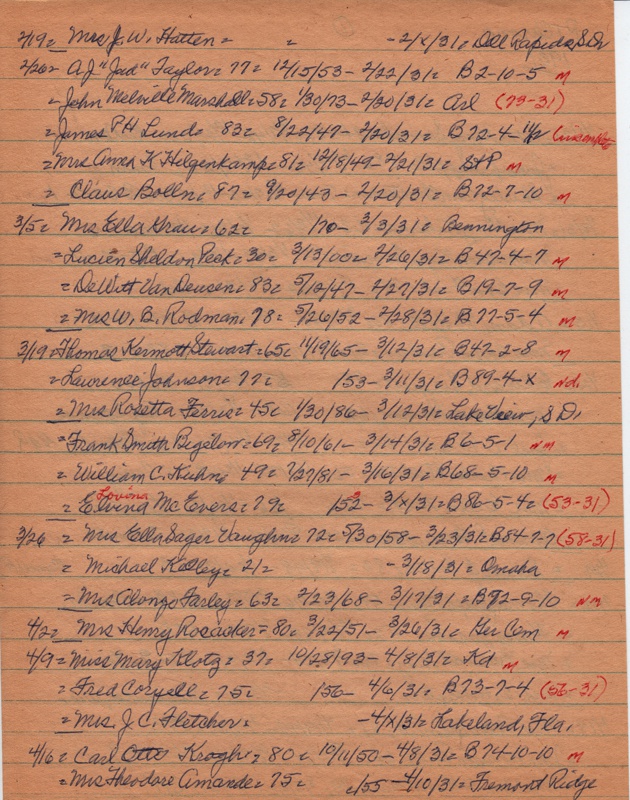 2/19 = Mrs J. W. Hatten = = - 2/x/31 = Dell Rapids, S.D.
2/26 = A J "Jud" Taylor = 77 = 12/15/53 - 2/22/31 = B 2-10-5 m
= John Melville Marshall = 58 = 1/30/73 - 2/20/31 = Arl (73-31)
= James P H Lund = 83 = 8/22/47 - 2/20/31 = B 72-4-11/2
= Mrs Anna K Hilgenkamp = 81 = 12/18/49 - 2/21/31 = St P m
= Claus Bolln = 87 = 9/20/43 - 2/20/31 = B 72-7-10 m
3/5 = Mrs Ella Grau = 62 = /70 - 3/3/31 = Bennington
= Lucien Sheldon Peek = 30 = 3/13/00 = 2/26/31 = B 47-4-7 m
= DeWitt Van Deusen = 83 = 5/12/47 - 2/27/31 = B 19-7-9 m
= Mrs W. B. Rodman = 78 = 5/26/52 - 2/28/31 = B 77-5-4 m
3/19 = Thomas Kermott Stewart = 65 = 11/19/65 - 3/12/31 = B 47-2-8 m
= Lawrence Johnson = 77 = /53 - 3/11/31 = B 89-4-x N.d.
= Mrs Rosetta Ferris = 45 = 1/30/86 - 3/12/31 = Lake View, S D.
= Frank Smith Bigelow = 69 = 8/10/61 - 3/14/31 = B 6-5-1 nm
= William C. Kuhn = 49 = 7/27/81 - 3/16/31 = B 68-5-10 m
= Elvina Lovina McEvers = 79 = /52 3 - 3/x/31 = B 86-5-4 = (53-31)
3/26 = Mrs Ella Sager Vaughn = 72 = 5/30/58 - 3/23/31 = B 84-7-7 (58-31)
= Michael Kelley = 21 = - 3/18/31 = Omaha
= Mrs Alonzo Farley = 63 = 2/23/68 - 3/17/31 = B 72-9-10 nm
4/2 = Mrs Henry Rosacker = 80 = 3/22/51 - 3/26/31 = Ger Cem m
4/9 = Miss Mary Klotz = 37 = 10/28/93 - 4/8/31 = Kd m
= Fred Coryell = 75 = /56 - 4/6/31 = B 73-7-4 (56-31)
= Mrs. J. C. Fletcher = - 4/x/31 = Lakeland, Fla.
4/16 = Carl Otto Krogh = 80 = 10/11/50 - 4/8/31 = B 74-10-10 m
= Mrs Theodore Amande = 75 = c/55 - 4/10/31 = Fremont Ridge